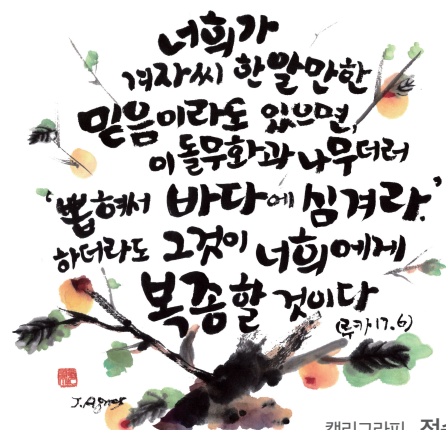 너희가
겨자씨 한알만한
믿음이라도 있으면,
이 돌무화과 나무더러
'뽑혀서 바다에 심겨라.'
하더라도 그것이 너희에게
복종할 것이다
(루카 17.6)
J. Agnes
캘리그라피